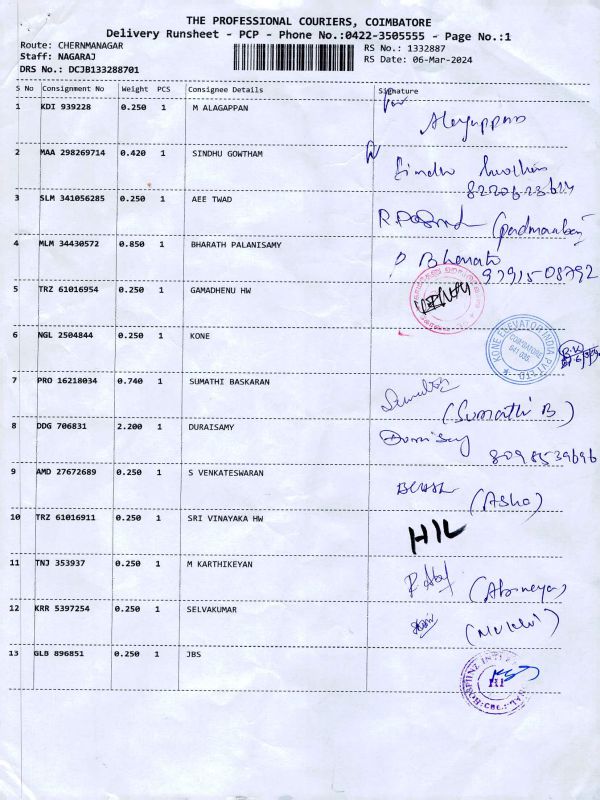 THE PROFESSIONAL COURIERS, COIMBATORE
Delivery Runsheet - PCP - Phone No.:0422-3505555 - Page No.:1
Route: CHERNMANAGAR RS No.: 1332887
Staff: NAGARAJ RS Date: 06-Mar-2024
DRS No.: DCJB133288701
S No Consignment No Weight PCS Consignee Details Signature
1 KDI 939228 0.250 1 M ALAGAPPAN
Alagappan
2 MAA 298269714 0.420 1 SINDHU GOWTHAM
Sindhu
3 SLM 341056285 0.250 1 AEE TWAD
(padmanaban)
4 MLM 34430572 0.850 1 BHARATH PALANISAMY
P Bharath
97915 08792
5 TRZ 61016954 0.250 1 GAMADHENU HW
6 NGL 2504844 0.250 1 KONE
KONE ELEVATOR INDIA PVT LTD
COIMBATORE
641 035
7 PRO 16218034 0.740 1 SUMATHI BASKARAN
Sumathi
(Sumathi B)
8 DDG 706831 2.200 1 DURAISAMY
Duraisamy
8098539696
9 AMD 27672689 0.250 1 S VENKATESWARAN
(Asha)
10 TRZ 61016911 0.250 1 SRI VINAYAKA HW
HIL
11 TNJ 353937 0.250 1 M KARTHIKEYAN
(Abineya)
12 KRR 5397254 0.250 1 SELVAKUMAR
(Mukhil)
13 GLB 896851 0.250 1 JBS